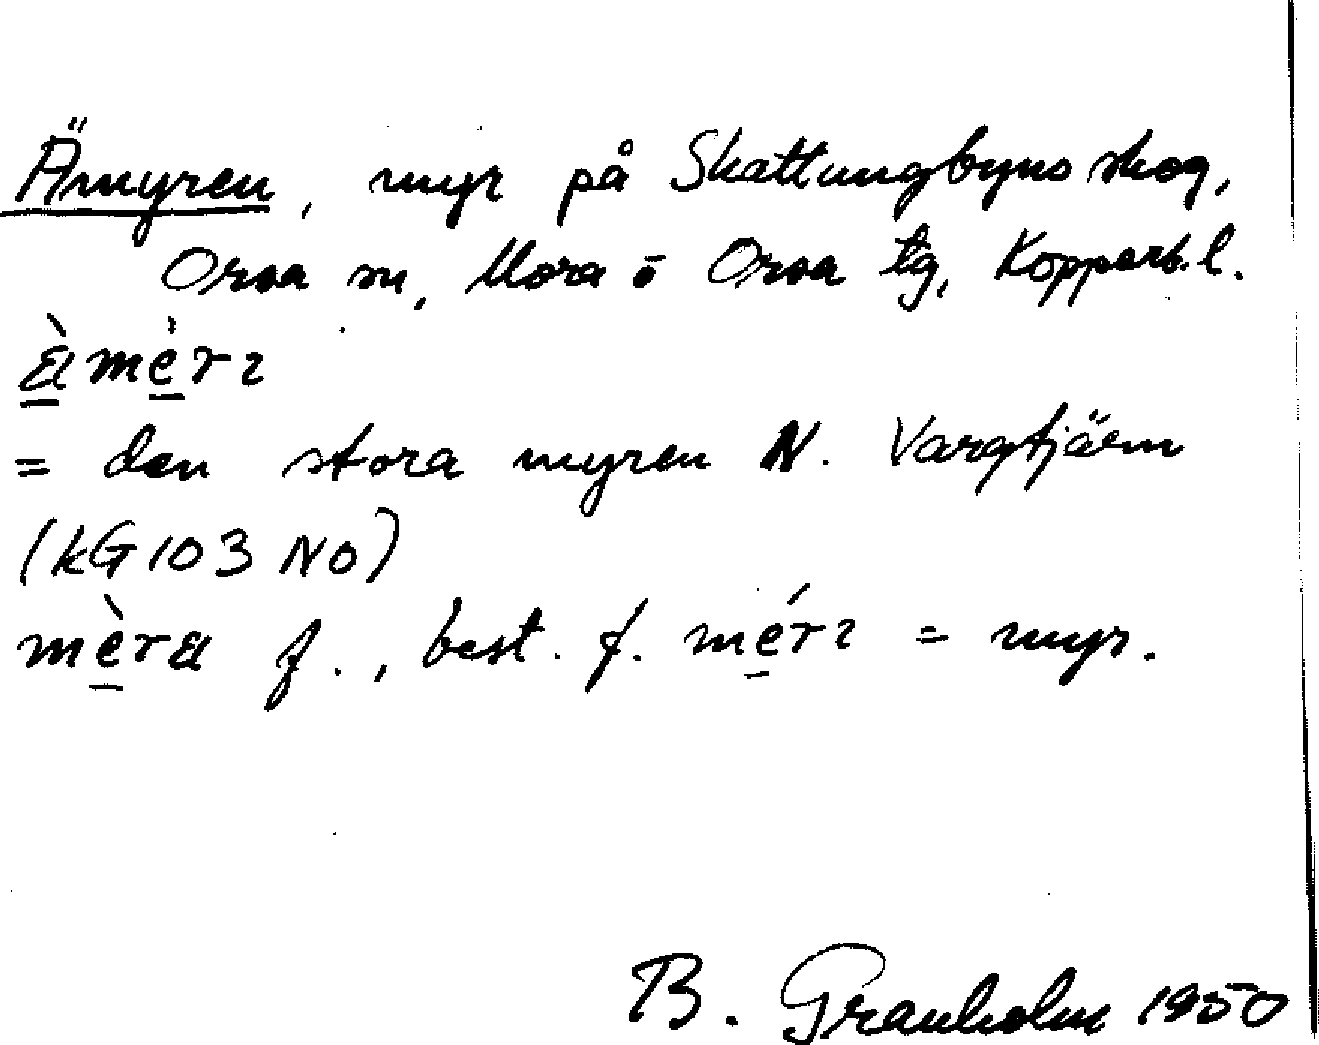 Ämyren, myr på Skattungbyns skog,
Orsa sn, Mora o Orsa tg, Kopparb. l.
æ̠̀mè̠rɿ
= den stora myren N. Vargtjärn
(kG 103 NO)
mè̠ræ f., best. f. mé̠rɿ = myr.
B. Granholm 1950